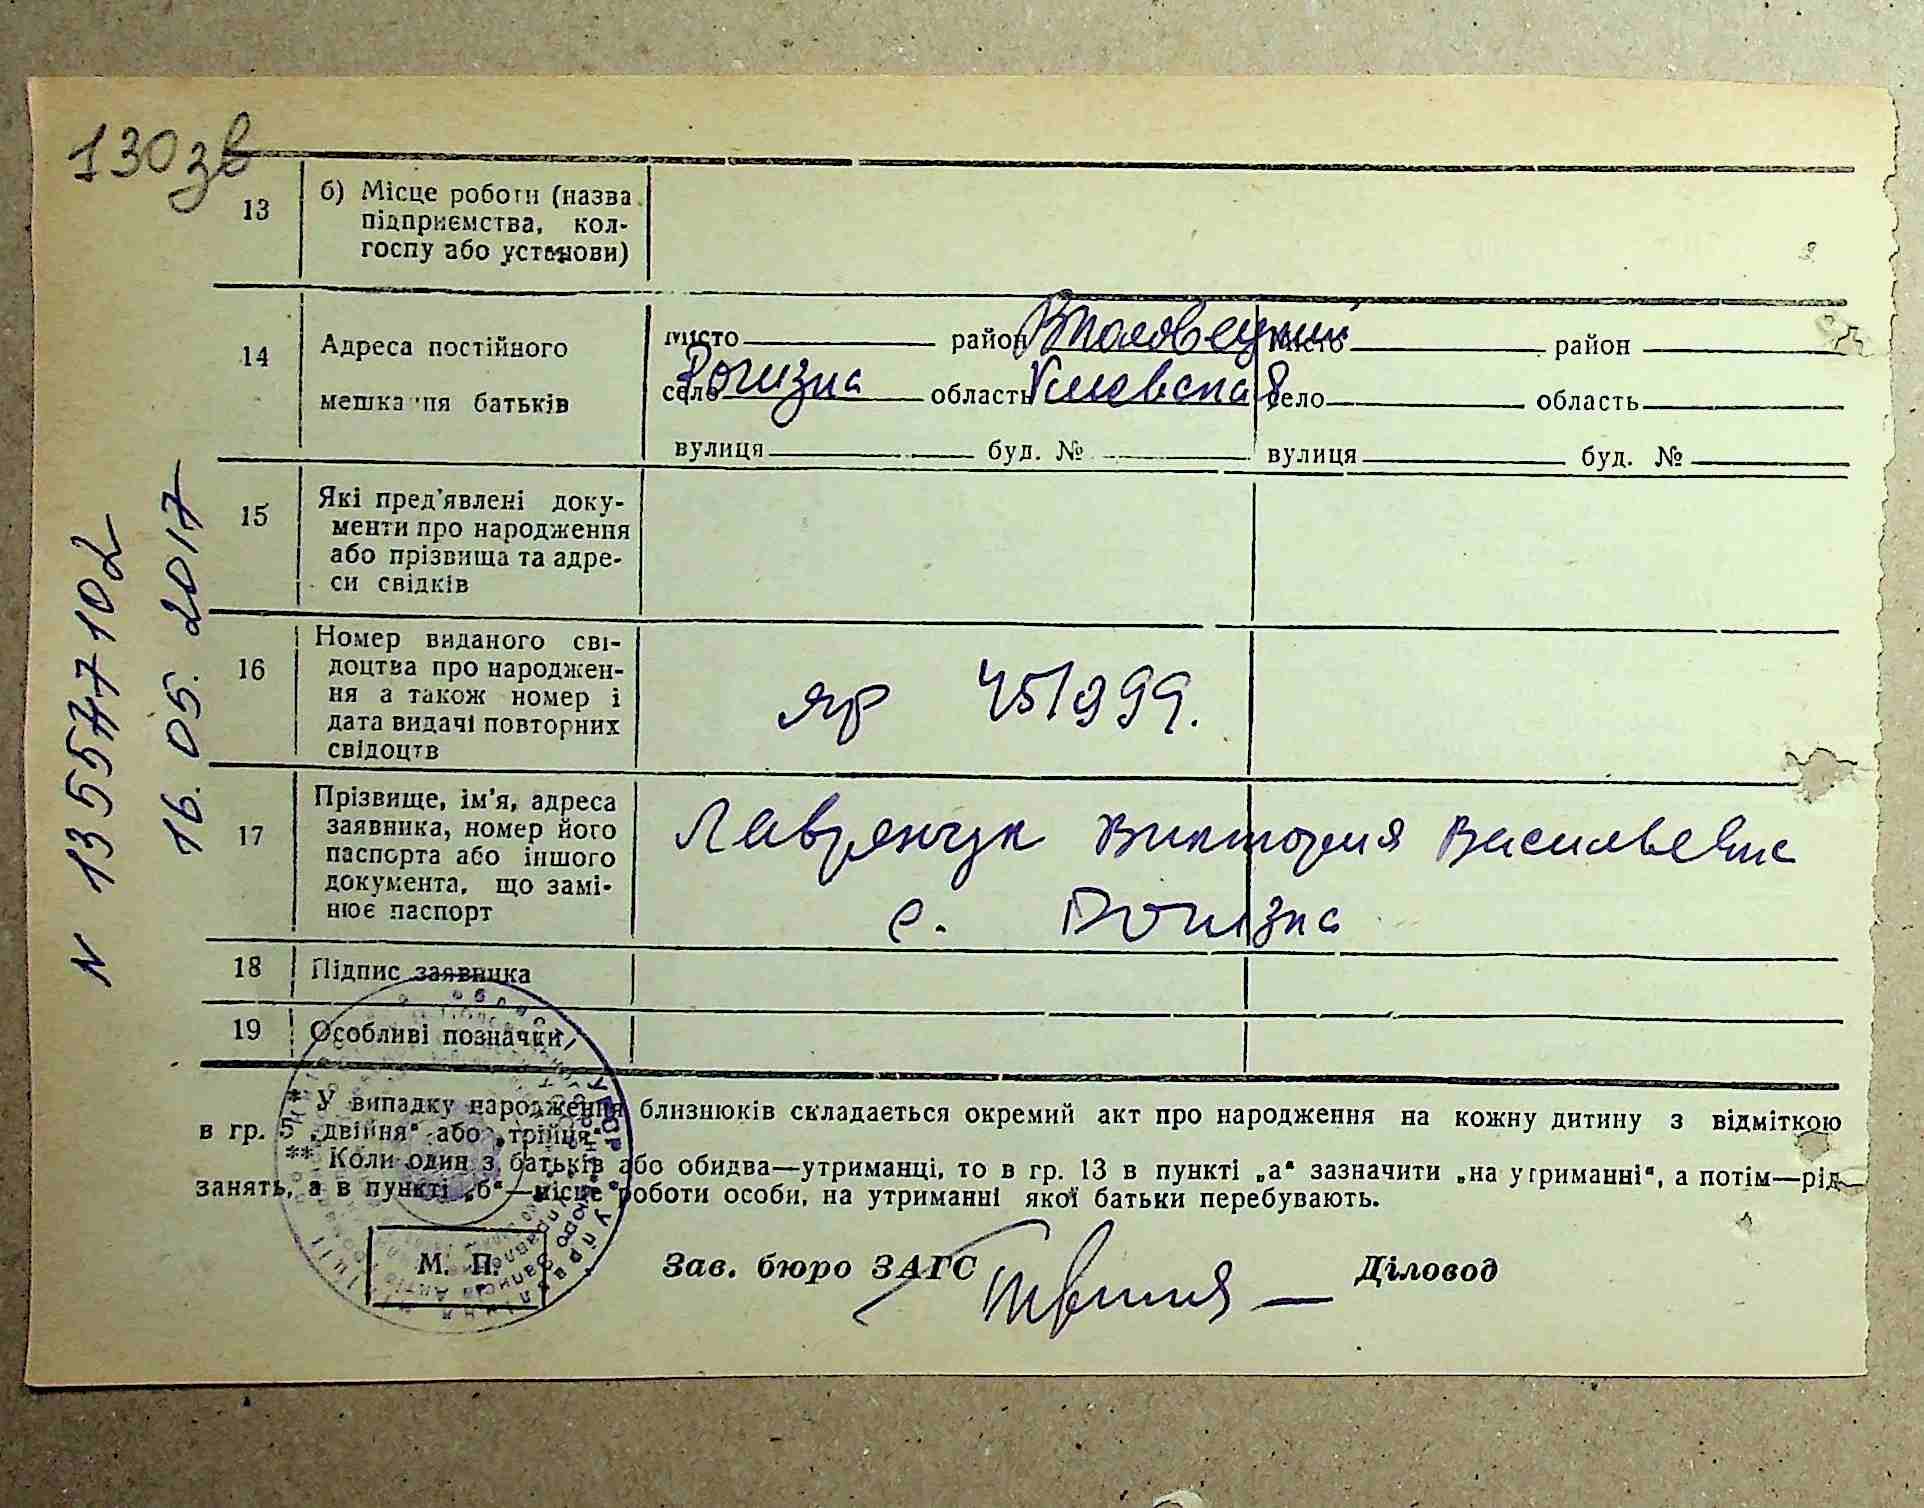 130зв
13
б) Місце роботи (назва
підприємства, кол-
госпу або установи)
14
Адреса постійного
мешкання батьків
місто район
село Рогизна область Киевская
вулиця буд. №
місто район
село область
вулиця буд. №
15
Які пред'явлені доку-
менти про народження
або прізвища та адре-
си свідків
16
Номер виданого сві-
доцтва про народжен-
ня а також номер і
дата видачі повторних
свідоцтв
яр 451999.
17
Прізвище, ім'я, адреса
заявника, номер його
паспорта або іншого
документа, що замі-
нює паспорт
Виктория Васильевна
с. Рогизна
18
Підпис заявника
19
Особливі позначки
* У випадку народження близнюків складається окремий акт про народження на кожну дитину з відміткою
в гр. 5 „двійня“ або „трійня“.
** Коли один з батьків або обидва—утриманці, то в гр. 13 в пункті „а“ зазначити „на утриманні“, а потім—рід
занять, а в пункті „б“—місце роботи особи, на утриманні якої батьки перебувають.
М. П.
Зав. бюро ЗАГС
Діловод
N 135547102
16. 05. 2017